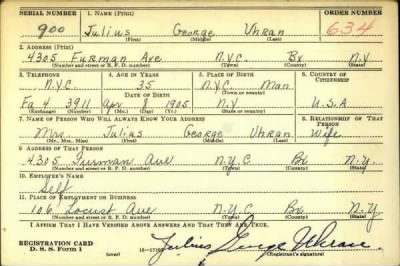 SERIAL NUMBER 1. NAME (Print) ORDER NUMBER
900 Julius George Uhran 634
(First) (Middle) (Last)
2. ADDRESS (Print)
4305 Furman Ave N.Y.C. Bx N.Y
(Number and street or R. F. D. number) (Town) (County) (State)
3. TELEPHONE 4. AGE IN YEARS 5. PLACE OF BIRTH 6. COUNTRY OF CITIZENSHIP
N.Y.C. 35 N.Y.C Man
DATE OF BIRTH (Town or county)
Fa 4 3911 Apr 8 1905 N.Y U.S.A
(Exchange) (Number) (Mo.) (Day) (Yr.) (State or country)
7. NAME OF PERSON WHO WILL ALWAYS KNOW YOUR ADDRESS 8. RELATIONSHIP OF THAT PERSON
Mrs Julius George Uhran Wife
(Mr., Mrs., Miss) (First) (Middle) (Last)
9. ADDRESS OF THAT PERSON
4305 Furman Ave N.Y.C Bx N.Y.
(Number and street or R. F. D. number) (Town) (County) (State)
10. EMPLOYER'S NAME
Self
11. PLACE OF EMPLOYMENT OR BUSINESS
106 Locust Ave N.Y.C Bx N.Y.
(Number and street or R. F. D. number) (Town) (County) (State)
I AFFIRM THAT I HAVE VERIFIED ABOVE ANSWERS AND THAT THEY ARE TRUE.
REGISTRATION CARD
D. S. S. Form 1 (over) 16— Julius George Uhran
(Registrant's signature)